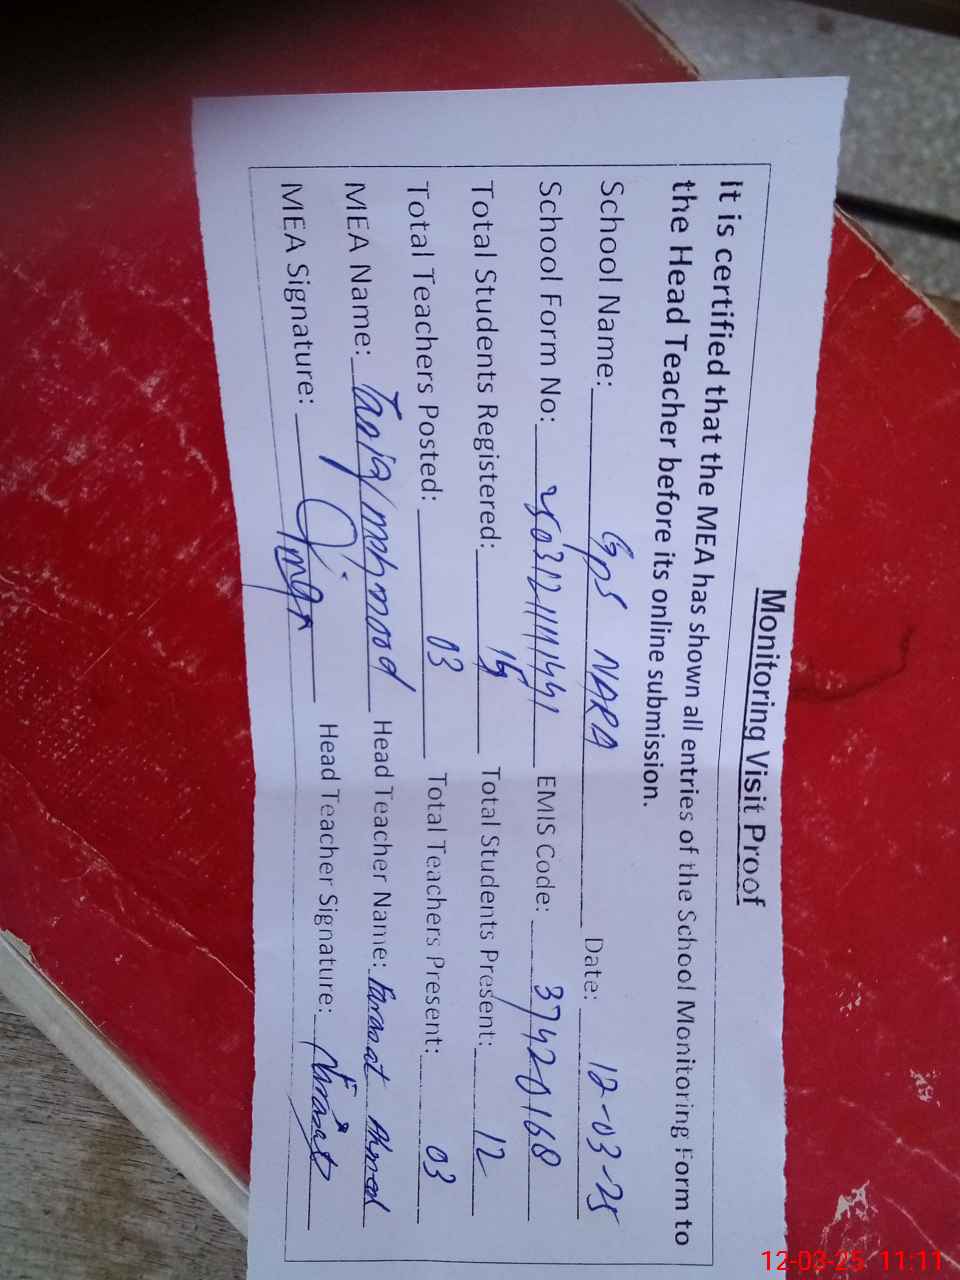 Monitoring Visit Proof
It is certified that the MEA has shown all entries of the School Monitoring Form to
the Head Teacher before its online submission.
School Name: GPS NARA Date: 12-03-25
School Form No: EMIS Code: 37420168
Total Students Registered: Total Students Present: 12
Total Teachers Posted: 03 Total Teachers Present: 03
MEA Name: Tariq mehmood Head Teacher Name: Farasat Ahmad
MEA Signature: Head Teacher Signature: Farasat
12-03-25 11:11